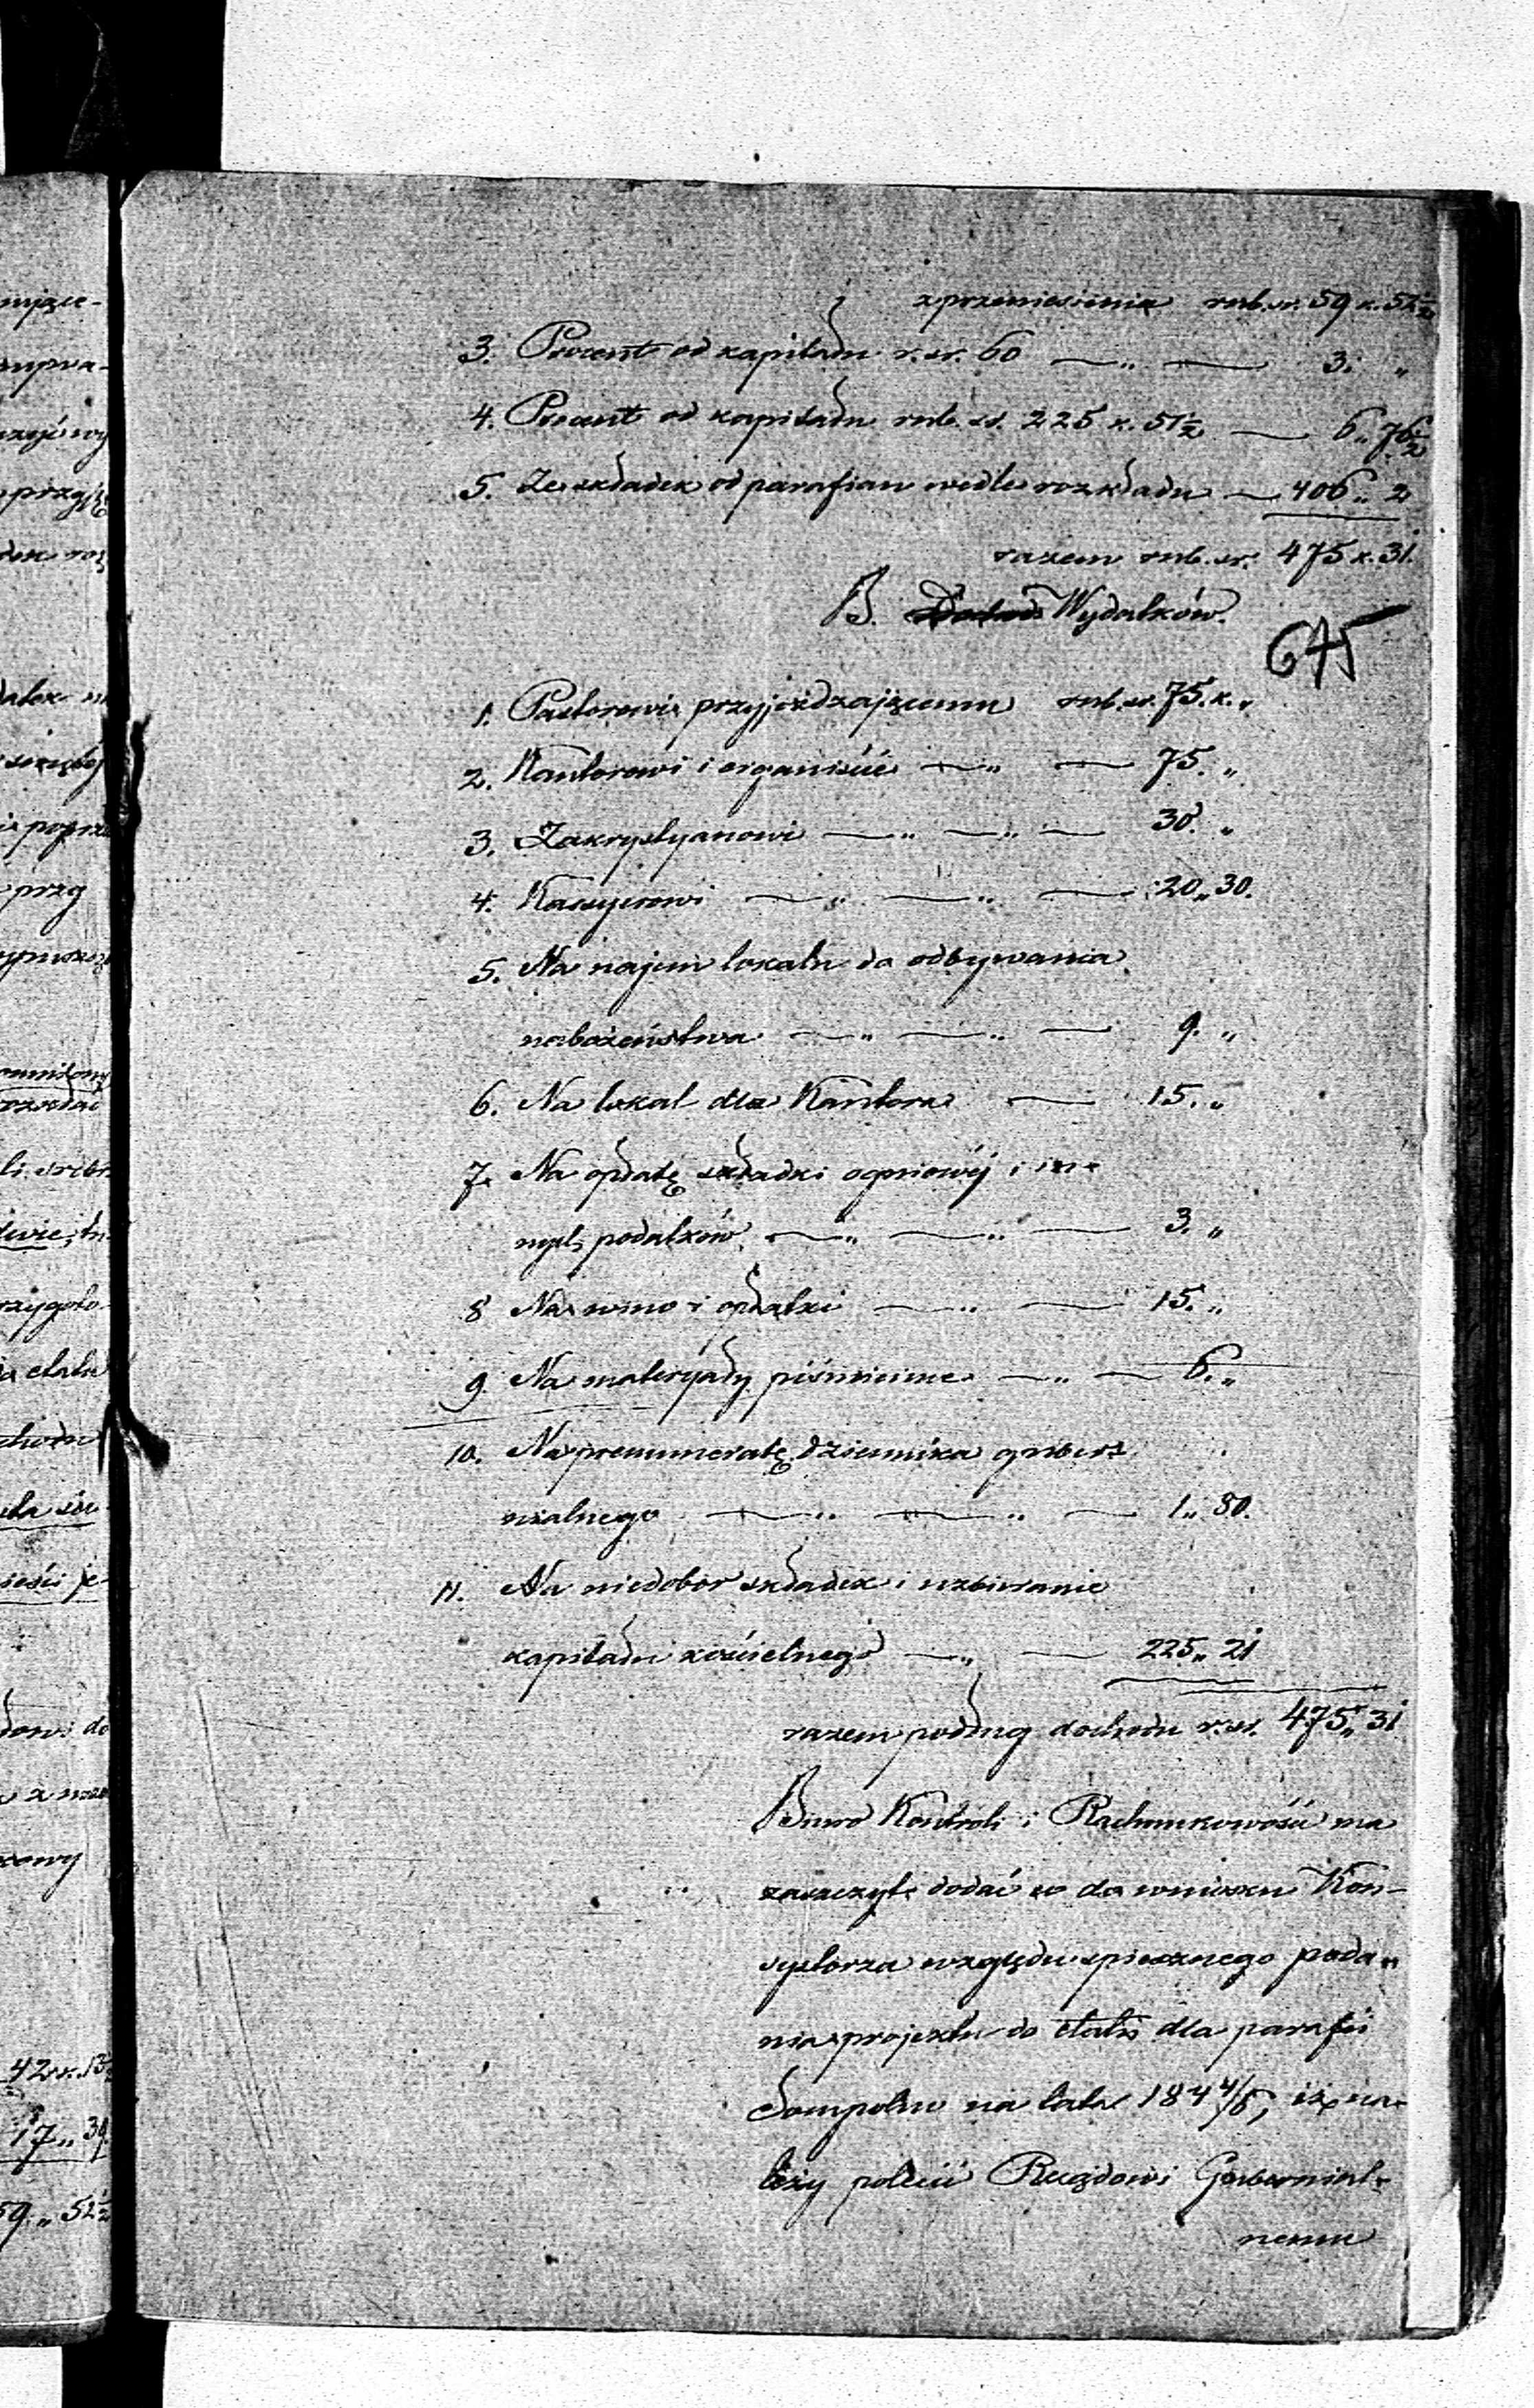 z przeniesienia rub. sr. 59 k. 52½
3. Procent od kapitału r. sr. 60 — „ — 3. „
4. Procent od kapitału rub. sr. 225 k. 51½ — 6 „ 76½
5. Ze składek od parafian wedle rozkładu — 406 „ 2
razem rub. sr. 475 k. 31.
B. Wydatków.
675
1. Pastorowi przyjeżdzającemu rub. sr. 75. k. „
2. Kantorowi i organiście — „ — 75. „
3. Zakrystyanowi — „ — „ — 30. „
4. Kassyerowi — „ — „ — 20 „ 30.
5. Na najem lokalu do odbywania
nabożeństwa — „ — „ — 9. „
6. Na lokal dla Kantora — 15. „
7. Na opłatę składki ogniowéj i in-
nych podatków — „ — „ — 3. „
8 Na wino i opłatki — „ — 15. „
9. Na materyały piśmienne — „ — 6. „
10. Na prenumeratę dziennika guber-
nialnego — „ — „ — 1 „ 80.
11. Na niedobór składek i uzbieranie
kapitału kościelnego — „ — 225 „ 21
razem podług dochodu r. sr. 475 „ 31
Biuro Kontroli i Rachunkowości ma
zaszczyt dodać co do wniosku Kon-
systorza względu spiesznego poda-
nia projektu do etatu dla parafii
Sompolno na lata 184 4/6, iż na-
leży polecić Rządowi Gubernial-
nemu
42 k. 13½
17 „ 39
59 „ 52½